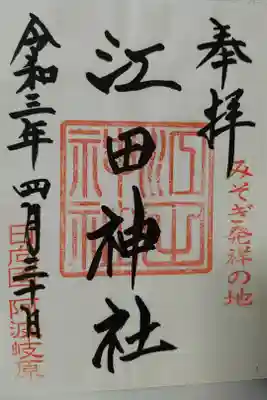 奉拝
みそぎ発祥の地
江田神社
江田
神社
令和三年四月三十日
日向国阿波岐原